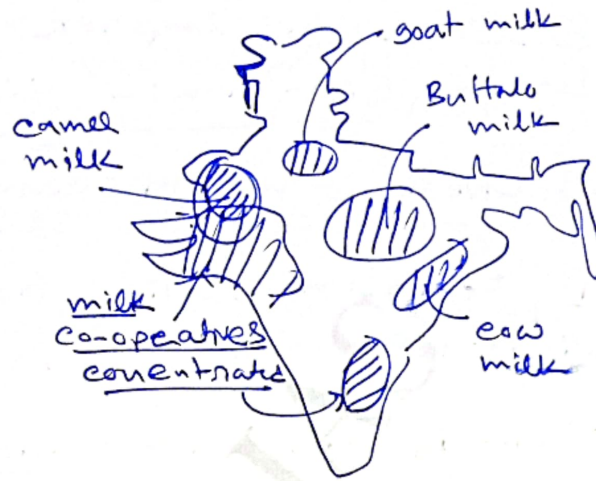 goat milk
Buffalo
milk
camel
milk
milk
co-operatives
concentrated
cow
milk